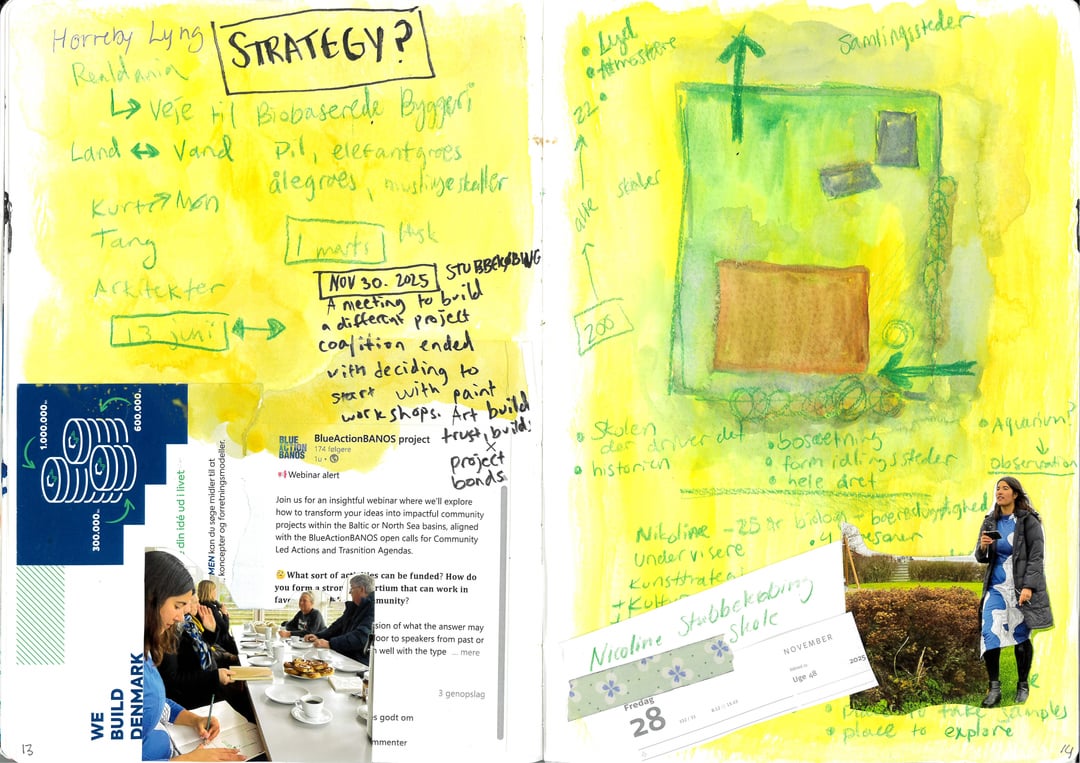 Horreby Lyng
STRATEGY?
Realdania
↳ Veje til Biobaserede Byggeri
Land ↔ Vand
Pil, elefantgroes
ålegroes, muslingeskaller
Kurt → Møn
Tang
1 marts
Husk
Arkitekter
13 juni ↔
NOV 30. 2025
STUBBEKØBING
A meeting to build
a different project
coalition ended
with deciding to
start with paint
workshops. Art build
trust, build
project
bonds.
1.000.000
600.000
300.000
din idé ud i livet
MEN kan du søge midler til at
koncepter og forretningsmodeller.
WE
BUILD
DENMARK
BLUE
ACTION
BANOS
BlueActionBANOS project
174 følgere
1u
Webinar alert
Join us for an insightful webinar where we'll explore
how to transform your ideas into impactful community
projects within the Baltic or North Sea basins, aligned
with the BlueActionBANOS open calls for Community
Led Actions and Trasnition Agendas.
What sort of activities can be funded? How do
you form a
ssion of what the answer may
speakers from past or
well with the type ... mere
3 genopslag
s godt om
mmenter
13
• Lyd
• Atmosfære
Samlingssteder
22
alle
skoler
200
• Skolen
der driver det
• historien
• bosætning
• formidlingssteder
• hele året
• Aquarium?
Observation
Nikoline - 25 år biolog - bæredygtighed
undervisere
• 4
Kunststrategi
+ Kultur
Nicoline Stubbekøbing
Skole
NOVEMBER
2025
Uge 48
Fredag
28
• place to take samples
• place to explore
14